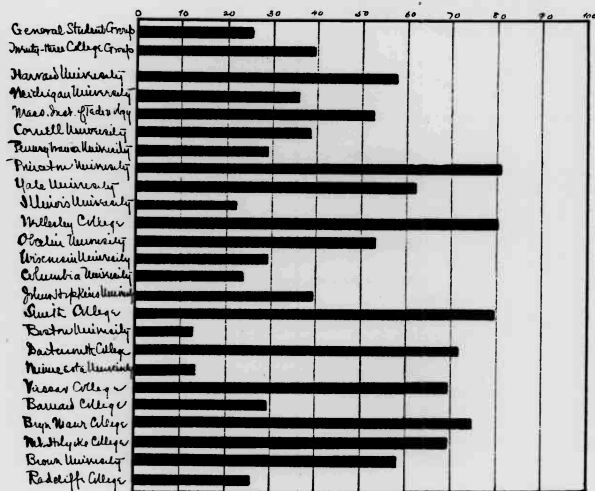 0 10 20 30 40 50 60 70 80 90 100
General Student Group
Twenty-three College Group
Harvard University
Michigan University
Mass. Inst. of Technology
Cornell University
Pennsylvania University
Princeton University
Yale University
Illinois University
Wellesley College
Oberlin University
Wisconsin University
Columbia University
John Hopkins University
Smith College
Boston University
Dartmouth College
Minnesota University
Vassar College
Barnard College
Bryn Mawr College
Mt. Holyoke College
Brown University
Radcliffe College